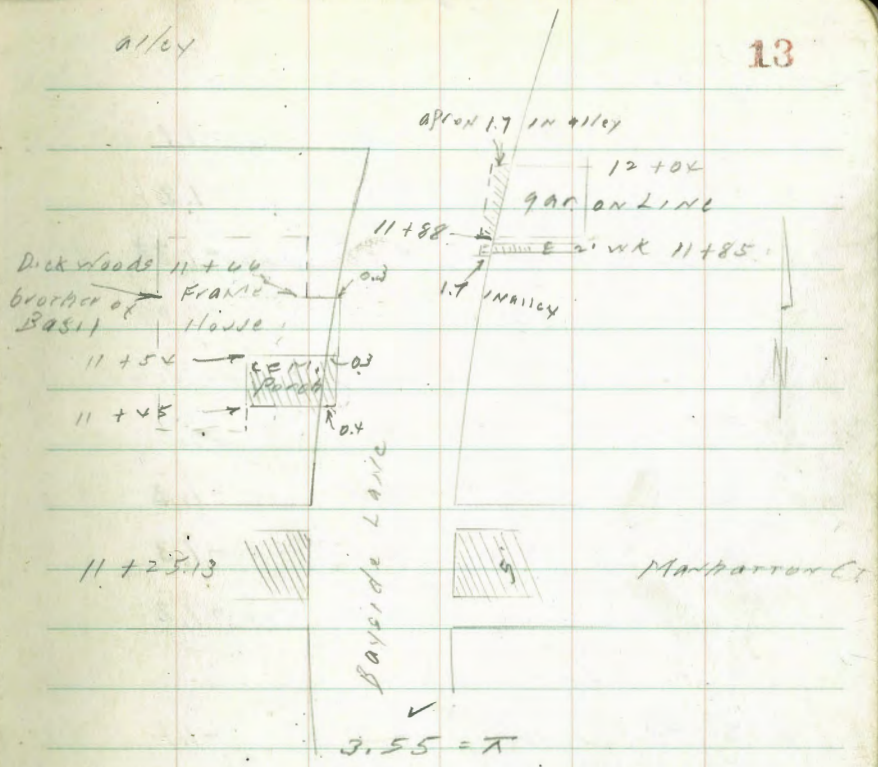 alley
13
apron 1.7 in alley
12 + 04
gar. on Line
11+88
E E 2' WK 11+85
1.7 in alley
Dick Woods 11 + 66 0.3
brother of Frame
Basil House
11 + 54 CEM. 0.3
Porch
11 + 45 0.4
N
Bayside Lane
11 + 25.13 5' Manhattan Ct
✓
3.55 = ⊼